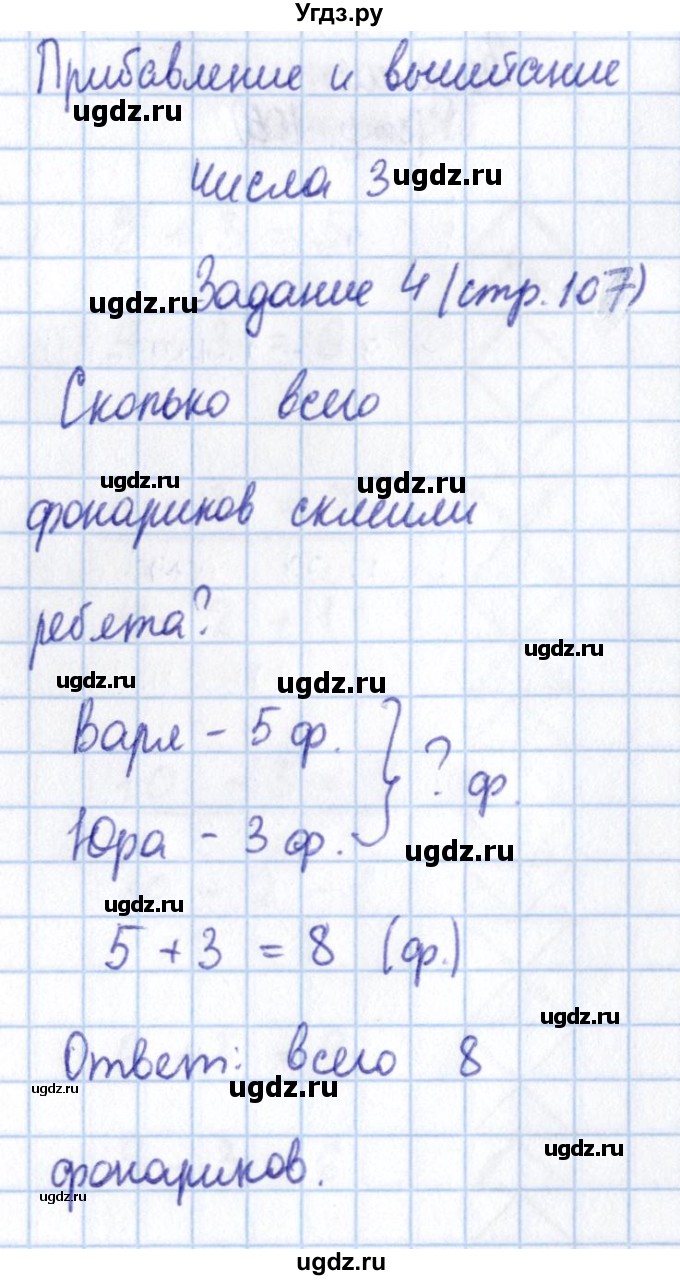 Угдз.ру
Прибавление и вычитание
ugdz.ru
числа 3 ugdz.ru
ugdz.ru Задание 4 (стр. 107)
Сколько всего
ugdz.ru ugdz.ru
фонариков склеили
ребята?
ugdz.ru
ugdz.ru ugdz.ru
Варя - 5 ф.
? ф.
Юра - 3 ф.
ugdz.ru
ugdz.ru
5 + 3 = 8 (ф.)
ugdz.ru
Ответ: всего 8
ugdz.ru ugdz.ru
ugdz.ru
фонариков.
ugdz.ru
ugdz.ru